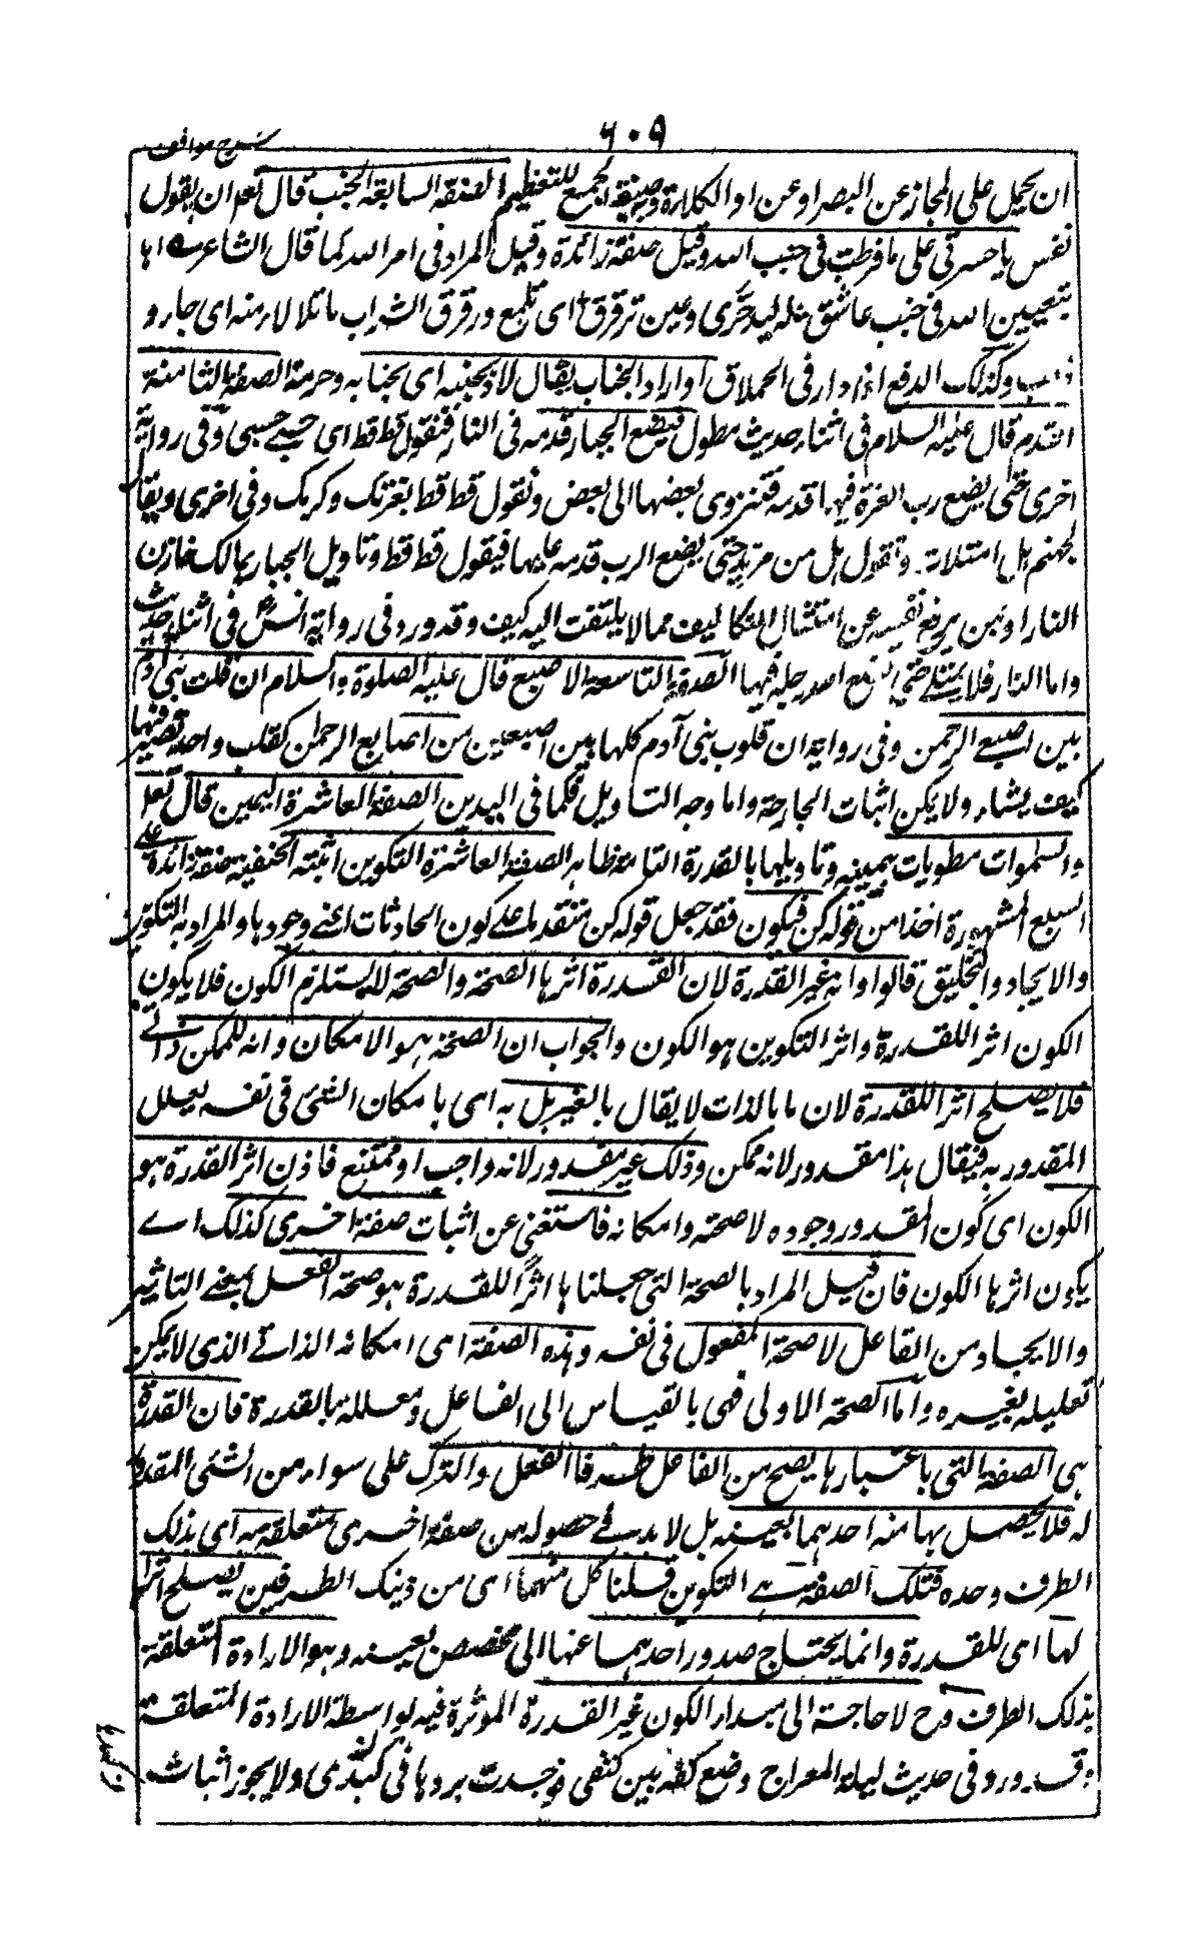 ٦٠٩
شرح مواقف
ان يحمل على المجاز عن البصر او عن او الكلاءة وصيغة الجمع للتعظيم الصفة السابعة الجنب قال تعالى ان يقول
نفس يا حسرتى على ما فرطت فى جنب الله وقيل صفة زائدة وقيل المراد فى امر الله كما قال الشاعر اما
تتقين الله فى جنب عاشق له كبد حرى وعين ترقرق اى تلمع ورقرق الشراب ما تلالا منه اى جاء و
ذهب وكذلك الدمع اذا دار فى الحملاق او اراد الجناب يقال لاذ بجنبه اى بجنابه وحرمة الصفة الثامنة
القدم قال عليه السلام فى اثناء حديث مطول فيضع الجبار قدمه فى النار فتقول قط قط اى حسبى حسبى وفى رواية
اخرى حتى يضع رب العزة فيها قدمه فتنزوى بعضها الى بعض وتقول قط قط بعزتك وكرمك وفى اخرى ويقال
لجهنم هل امتلات وتقول هل من مزيد حتى يضع الرب قدمه عليها فيقول قط قط وتاويل الجبار بمالك خازن
النار او بمن يرفع نفسه عن امتثال التكاليف مما لا يلتفت اليه كيف وقد ورد فى رواية انس فى اثناء حديث
واما النار فلا تمتلئ حتى يضع الله رجله فيها الصفة التاسعة الاصبع قال عليه الصلوة والسلام ان قلب بنى آدم
بين اصبعى الرحمن وفى رواية ان قلوب بنى آدم كلها بين اصبعين من اصابع الرحمن كقلب واحد يصرفها
كيف يشاء ولا يمكن اثبات الجارحة واما وجه التاويل فكما فى اليدين الصفة العاشرة اليمين قال تعالى
والسموات مطويات بيمينه وتاويلها بالقدرة التامة ظاهر الصفة العاشرة التكوين اثبته الحنفية صفة زائدة على
السبع المشهورة اخذا من قوله كن فيكون فقد جعل قوله كن متقدما على كون الحادثات اعنى وجودها والمراد به التكوين
والايجاد والتخليق قالوا وانه غير القدرة لان القدرة اثرها الصحة والصحة لا يستلزم الكون فلا يكون
الكون اثرا للقدرة واثر التكوين هو الكون والجواب ان الصحة هو الامكان وانه للممكن ذاتى
فلا يصلح اثرا للقدرة لان ما بالذات لا يقال بالغير بل به اى بامكان الشئ فى نفسه يعلل
المقدور به فيقال هذا مقدور لانه ممكن وذلك غير مقدور لانه واجب او ممتنع فاذن اثر القدرة هو
الكون اى كون المقدور ووجوده لا صحته وامكانه فاستغنى عن اثبات صفة اخرى كذلك اے
يكون اثرها الكون فان قيل المراد بالصحة التى جعلناها اثرا للقدرة هو صحة الفعل بمعنى التاثير
والايجاد من الفاعل لا صحة المفعول فى نفسه وهذه الصفة اى امكانه الذاتى الذى لا يمكن
تعليله بغيره واما الصحة الاولى فهى بالقياس الى الفاعل ومعللة بالقدرة فان القدرة
هى الصفة التى باعتبارها يصح من الفاعل طرفا الفعل والترك على سواء من الشئ المقدور
له فلا يحصل بها منه احدهما بعينه بل لا بد فى حصوله من صفة اخرى متعلقة به اى بذلك
الطرف وحده فتلك الصفة هى التكوين قلنا كل منهما اى من ذينك الطرفين يصلح اثرا
لها اى للقدرة وانما يحتاج صدور احدهما عنها الى مخصص بعينه وهو الارادة المتعلقة
بذلك الطرف وح لا حاجة الى مبدا الكون غير القدرة المؤثرة فيه بواسطة الارادة المتعلقة
وقد ورد فى حديث ليلة المعراج وضع كفه بين كتفى فوجدت بردها فى كبدى ولا يجوز اثبات